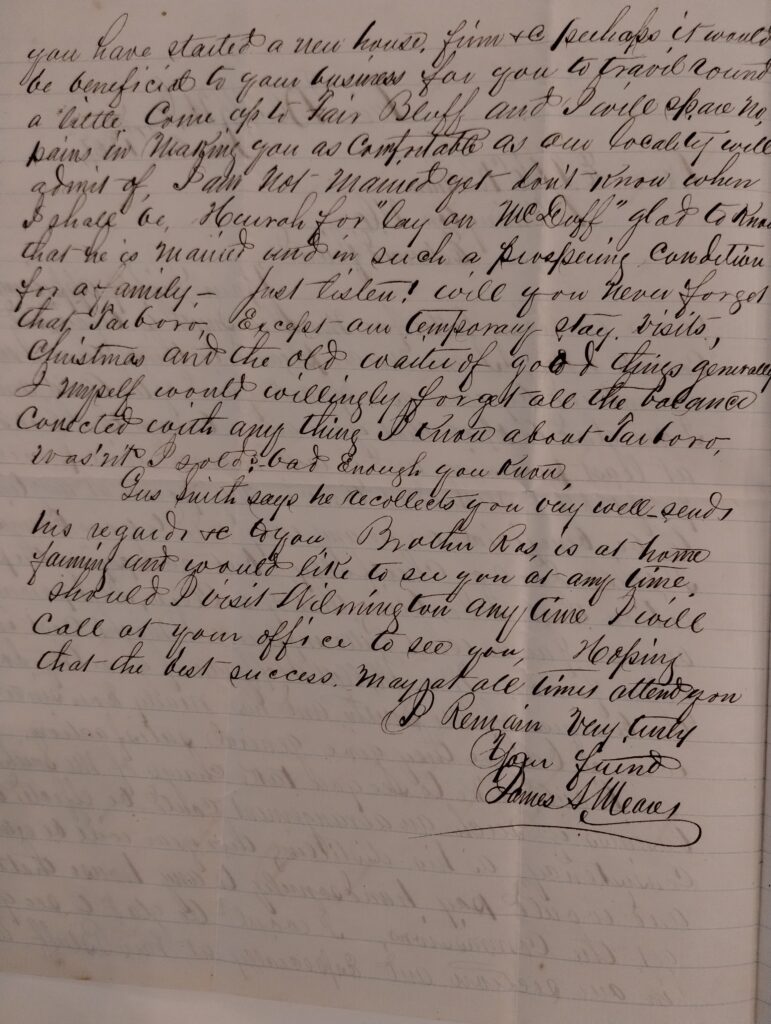 you have started a new house, firm &c perhaps it would
be beneficial to your business for you to travil round
a little. Come up to Fair Bluff and I will spare no,
pains in making you as Comfortable as our locality will
admit of, I am not married yet don't know when
I shall be, Hurrah for "lay on McDuff" glad to know
that he is married and in such a prospering condition
for a family.— Just listen! will you never forget
that, Tarboro, Except our temporary stay, visits,
Christmas and the old waiter of good things generally
I myself would willingly forget all the balance
Conected with any thing I know about Tarboro,
was'nt I sold? bad Enough you know,
Gus Smith says he recollects you very well—sends
his regards &c to you Brother Ros, is at home
farming and would like to see you at any time.
should I visit Wilmington any time I will
Call at your office to see you, Hoping
that the best success. may at all times attend you
I Remain Very truly
Your friend
James S. Meares